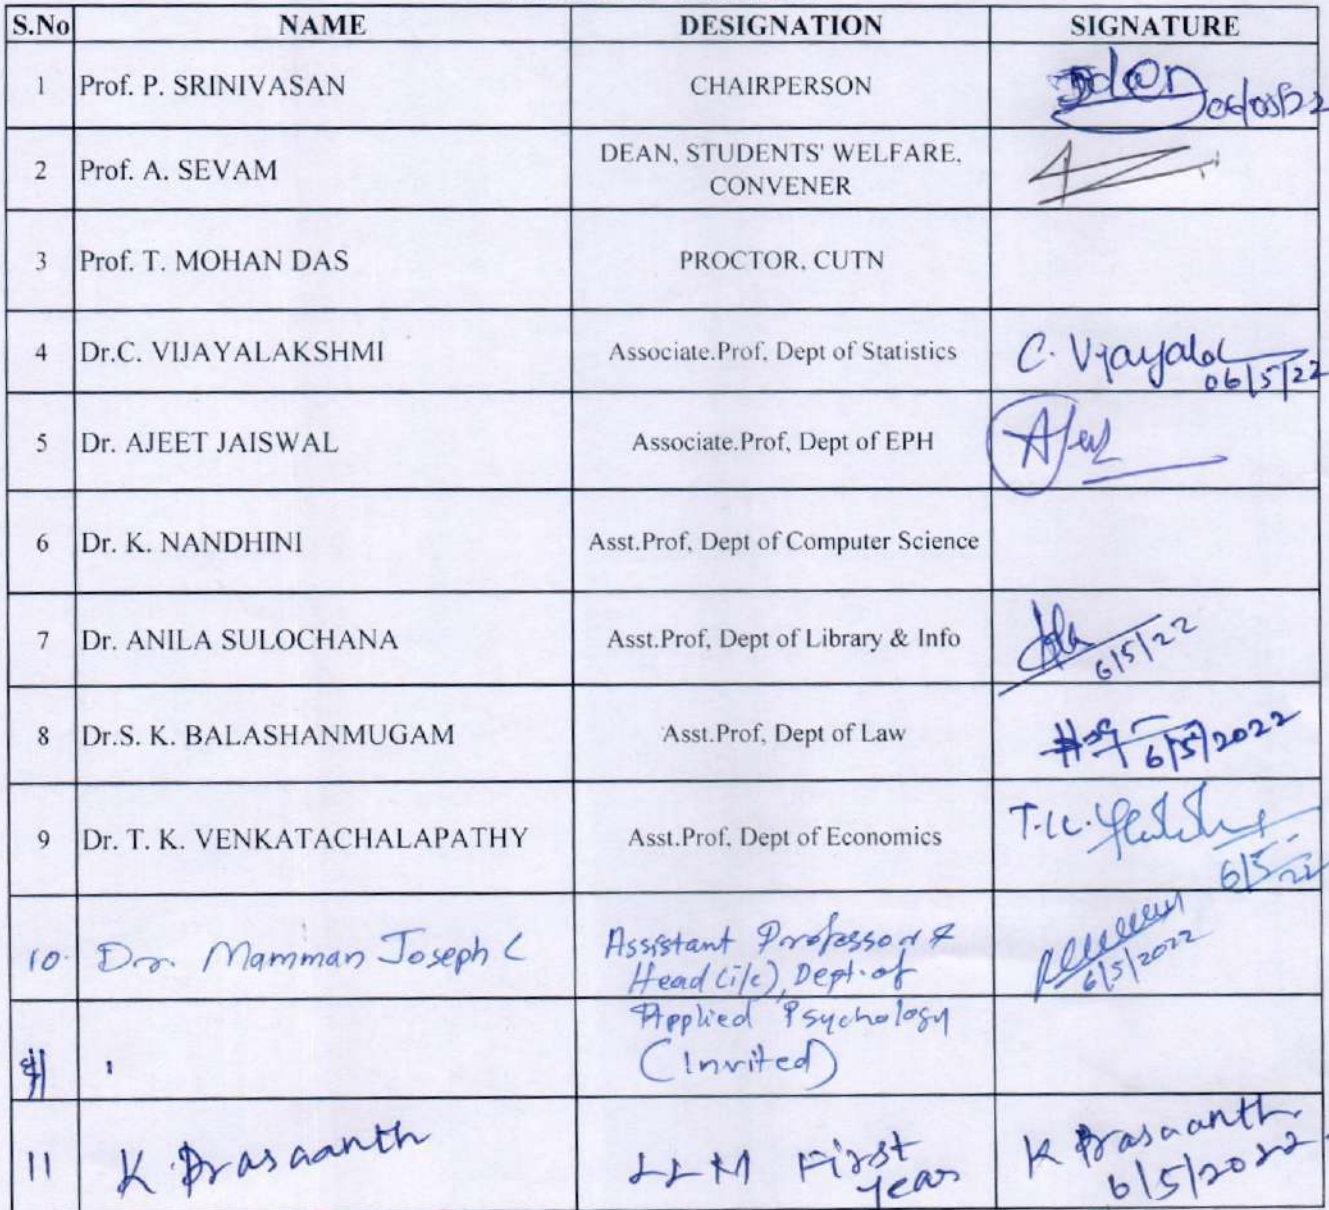 S.No NAME DESIGNATION SIGNATURE
1 Prof. P. SRINIVASAN CHAIRPERSON
2 Prof. A. SEVAM DEAN, STUDENTS' WELFARE,
CONVENER
3 Prof. T. MOHAN DAS PROCTOR, CUTN
4 Dr.C. VIJAYALAKSHMI Associate.Prof, Dept of Statistics C. Vijayalak
06/5/22
5 Dr. AJEET JAISWAL Associate.Prof, Dept of EPH
6 Dr. K. NANDHINI Asst.Prof, Dept of Computer Science
7 Dr. ANILA SULOCHANA Asst.Prof, Dept of Library & Info
6/5/22
8 Dr.S. K. BALASHANMUGAM Asst.Prof, Dept of Law
6/5/2022
9 Dr. T. K. VENKATACHALAPATHY Asst.Prof, Dept of Economics T.K.
6/5/22
10. Dr. Mamman Joseph C Assistant Professor &
Head (i/c), Dept. of
6/5/2022
Applied Psychology
(Invited)
11 K Prasaanth LLM First
year
K Prasaanth
6/5/2022